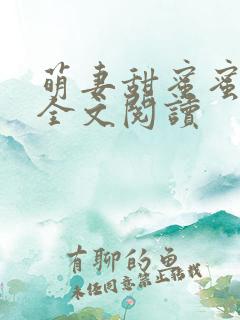 萌妻甜蜜蜜
全文閱讀
有聊的魚
未经同意禁止转载